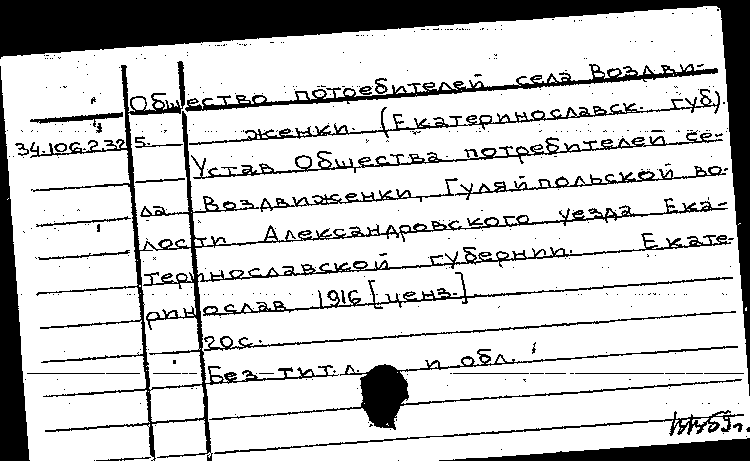 Общество потребителей села Воздви-
женки. (Екатеринославск. губ).
34.106.2.325.
Устав Общества потребителей се-
ла Воздвиженки, Гуляйпольской во-
лости Александровского уезда Ека-
теринославской губернии. Екате-
ринослав 1916 [ценз.]
20с.
Без тит. л. и обл.